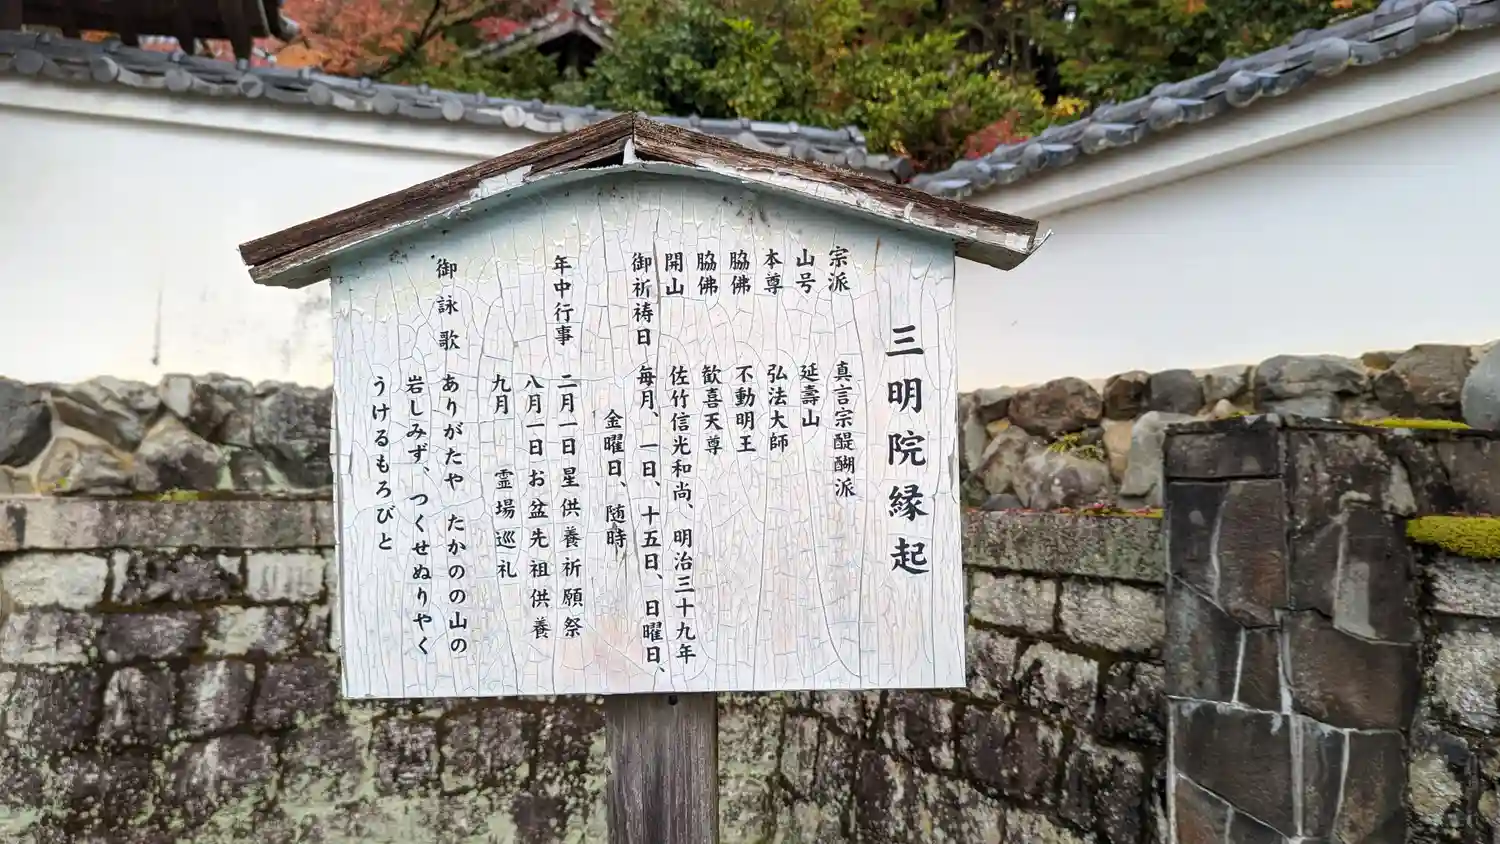 三明院縁起
宗派 真言宗醍醐派
山号 延壽山
本尊 弘法大師
脇佛 不動明王
脇佛 歓喜天尊
開山 佐竹信光和尚、明治三十九年
御祈祷日 毎月、一日、十五日、日曜日、
金曜日、随時
年中行事 二月一日星供養祈願祭
八月一日お盆先祖供養
九月 霊場巡礼
御詠歌 ありがたや たかのの山の
岩しみず、つくせぬりやく
うけるもろびと